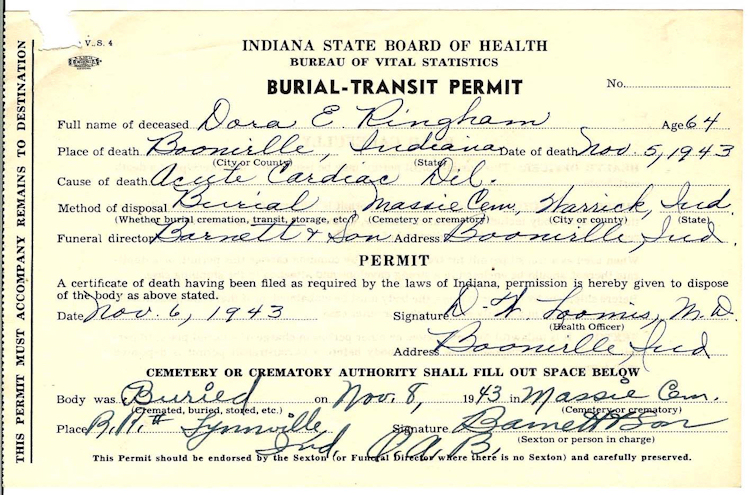 V. S. 4
INDIANA STATE BOARD OF HEALTH
BUREAU OF VITAL STATISTICS
BURIAL-TRANSIT PERMIT
No.
Full name of deceased Dora E Ringham Age 64
Place of death Boonville, Indiana Date of death Nov. 5, 1943
(City or County) (State)
Cause of death Acute Cardiac Dil.
Method of disposal Burial Massie Cem, Warrick, Ind.
(Whether burial cremation, transit, storage, etc.) (Cemetery or crematory) (City or county) (State)
Funeral director Barnett & Son Address Boonville, Ind.
PERMIT
A certificate of death having been filed as required by the laws of Indiana, permission is hereby given to dispose
of the body as above stated.
Date Nov. 6, 1943 Signature D. W. Loomis, M. D.
(Health Officer)
Address Boonville, Ind
CEMETERY OR CREMATORY AUTHORITY SHALL FILL OUT SPACE BELOW
Body was Buried on Nov. 8, 1943 in Massie Cem.
(Cremated, buried, stored, etc.) (Cemetery or crematory)
Place R.R. Lynnville Signature Barnett & Son
Ind. (Sexton or person in charge)
This Permit should be endorsed by the Sexton (or Funeral Director where there is no Sexton) and carefully preserved.
THIS PERMIT MUST ACCOMPANY REMAINS TO DESTINATION